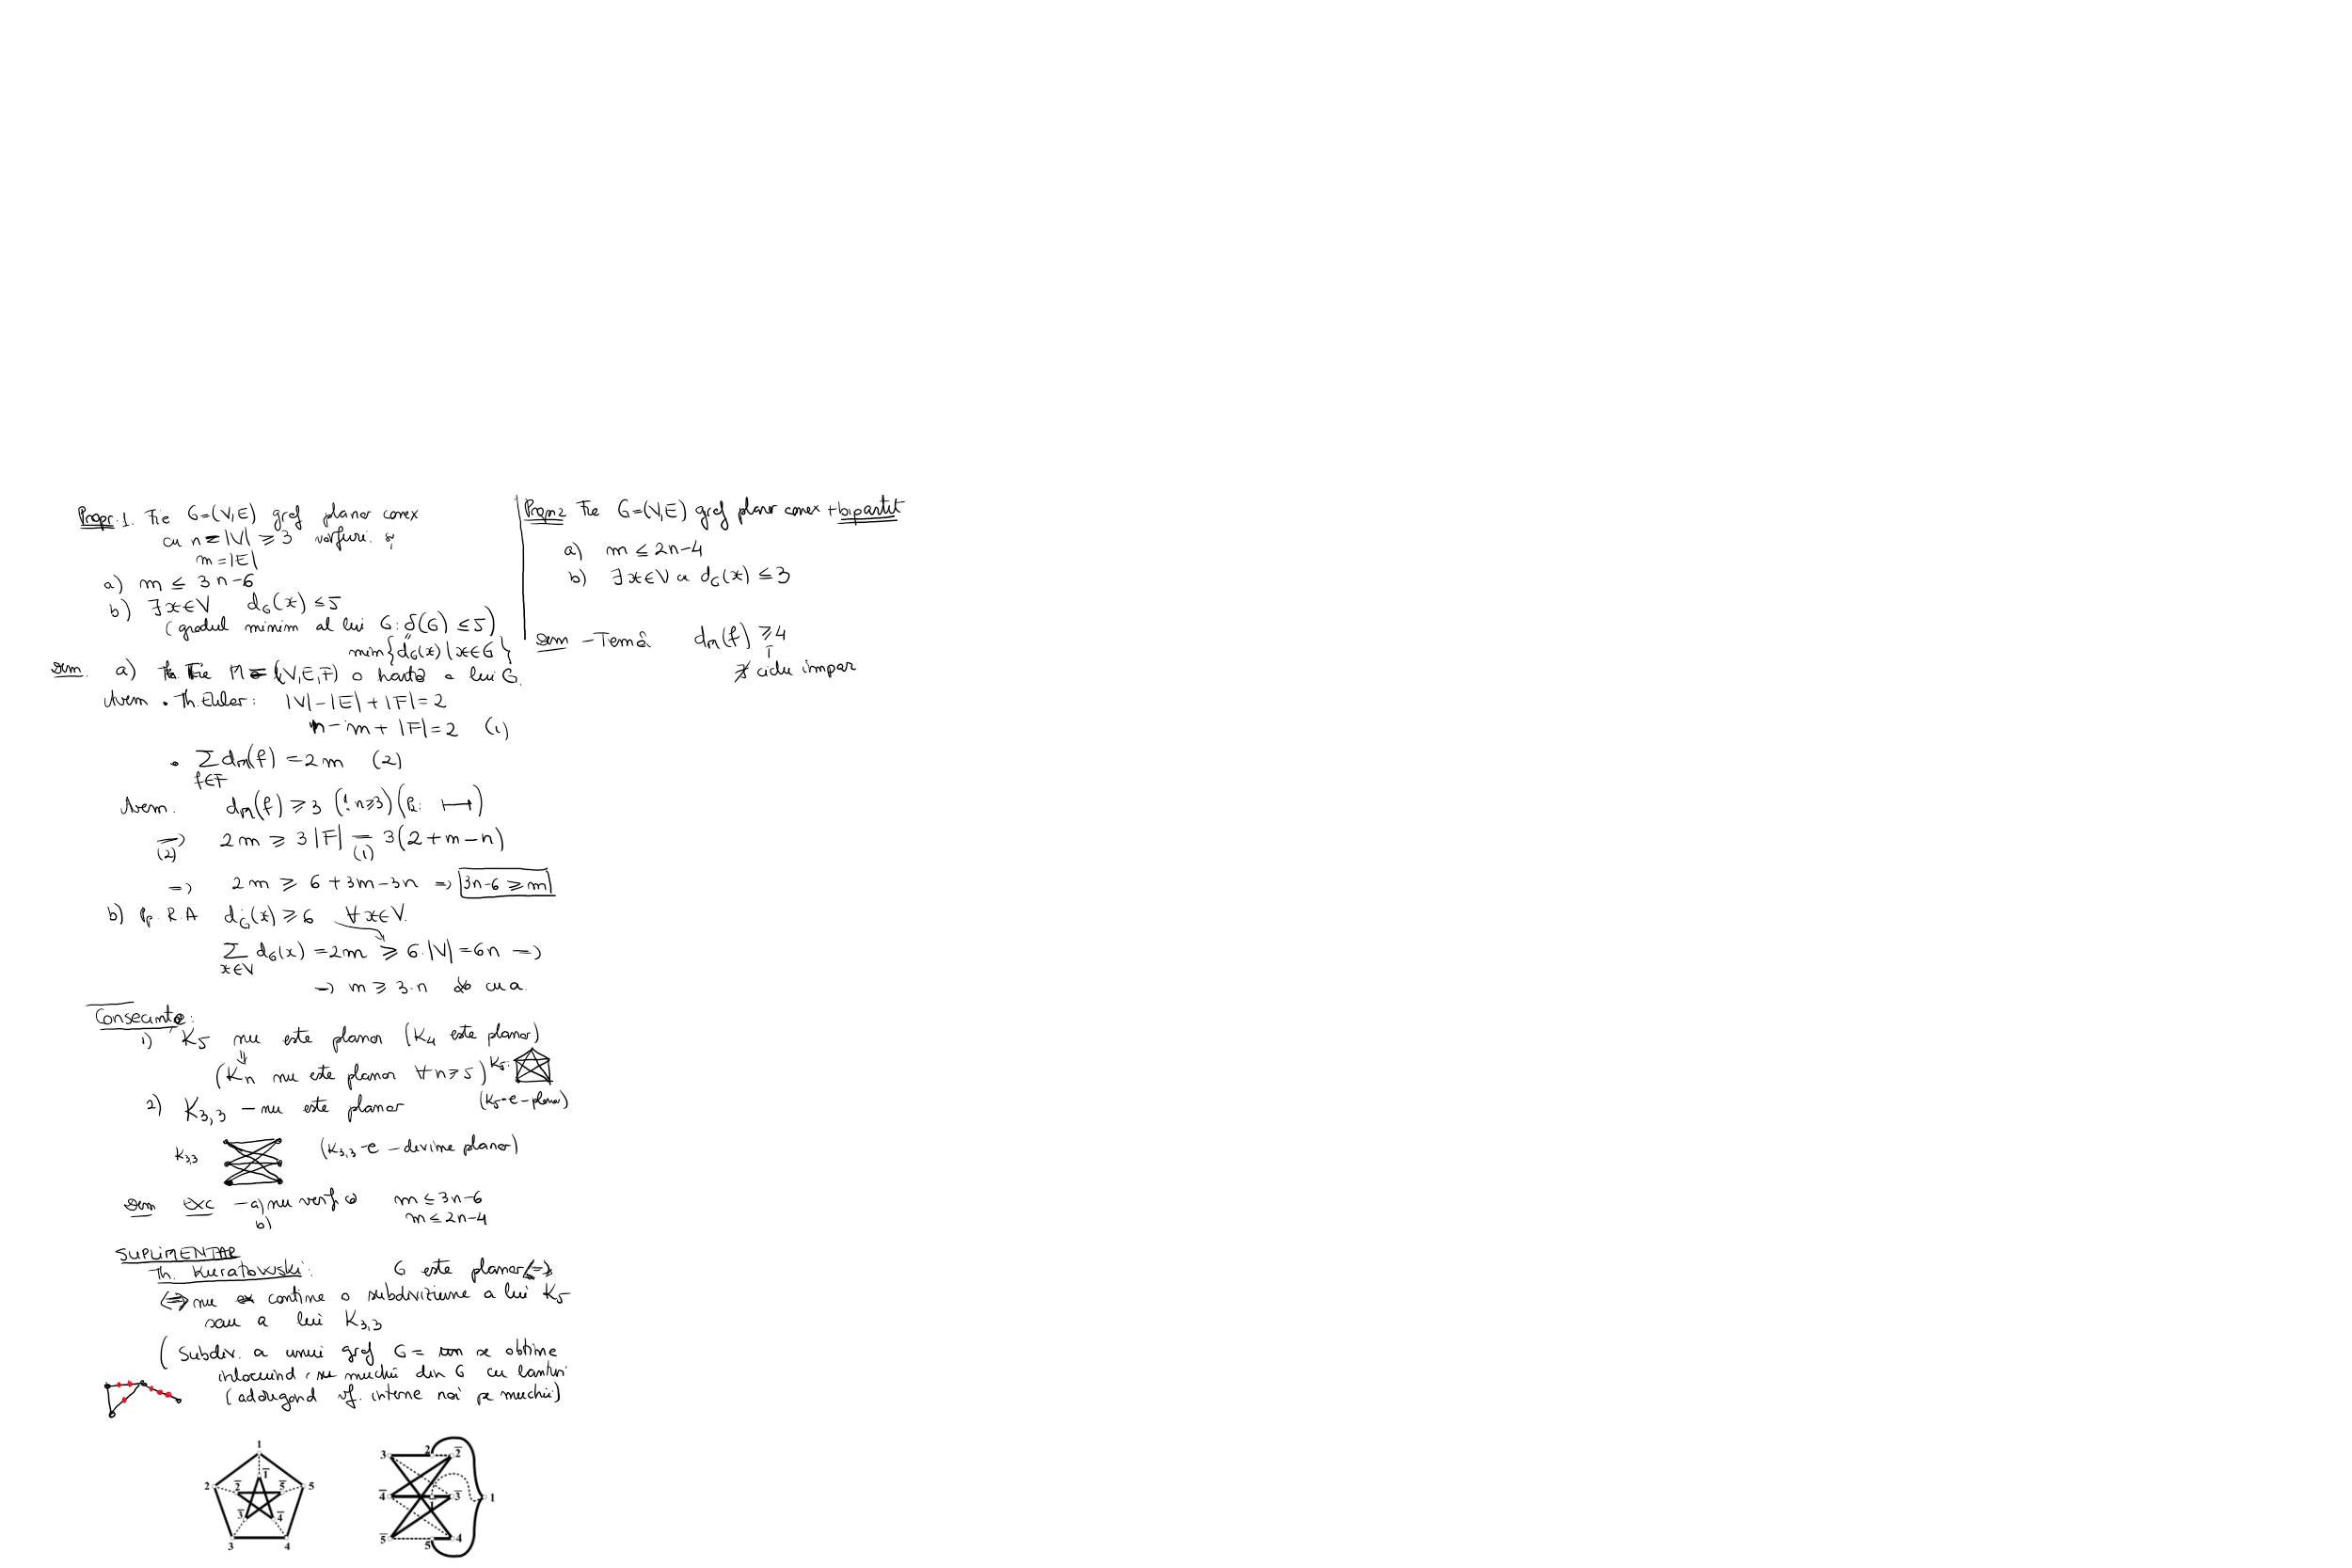 Propr. 1. Fie G=(V,E) graf planar conex
cu n=|V| ≥ 3 vârfuri. și
m=|E|
a) m ≤ 3n-6
b) ∃x∈V d_G(x) ≤ 5
(gradul minim al lui G: δ(G) ≤ 5)
min{d_G(x) | x∈G}
Dem. a) Fie M=(V,E,F) o hartă a lui G.
Avem • Th. Euler: |V|-|E|+|F|=2
n-m+|F|=2 (1)
• Σ d_M(f) = 2m (2)
f∈F
Avem. d_M(f) ≥ 3 (! n≥3)
⇒ 2m ≥ 3|F| = 3(2+m-n)
(2) (1)
=> 2m ≥ 6+3m-3n => 3n-6 ≥ m
b) Pp. R.A d_G(x) ≥ 6 ∀x∈V.
Σ d_G(x) = 2m ≥ 6·|V| = 6n =>
x∈V
=> m ≥ 3·n cu a.
Consecințe:
1) K5 nu este planar (K4 este planar)
⇓
(Kn nu este planar ∀n≥5) K5:
(K5-e-planar)
2) K3,3 – nu este planar
K3,3 (K3,3-e – devine planar)
Dem Exc – a) nu verifică m ≤ 3n-6
b) m ≤ 2n-4
SUPLIMENTAR
Th. Kuratowski: G este planar <=>
<=> nu conține o subdiviziune a lui K5
sau a lui K3,3
(Subdiv. a unui graf G = se obține
înlocuind muchii din G cu lanțuri
(adăugând vf. interne noi pe muchii)
Propr. 2 Fie G=(V,E) graf planar conex + bipartit
a) m ≤ 2n-4
b) ∃x∈V cu d_G(x) ≤ 3
Dem – Temă d_M(f) ≥ 4
∄ ciclu impar
1
1̅
2 2̅ 5̅ 5
3̅ 4̅
3 4
3 2 2̅
4̅ 1̅ 3̅ 1
5̅ 5 4